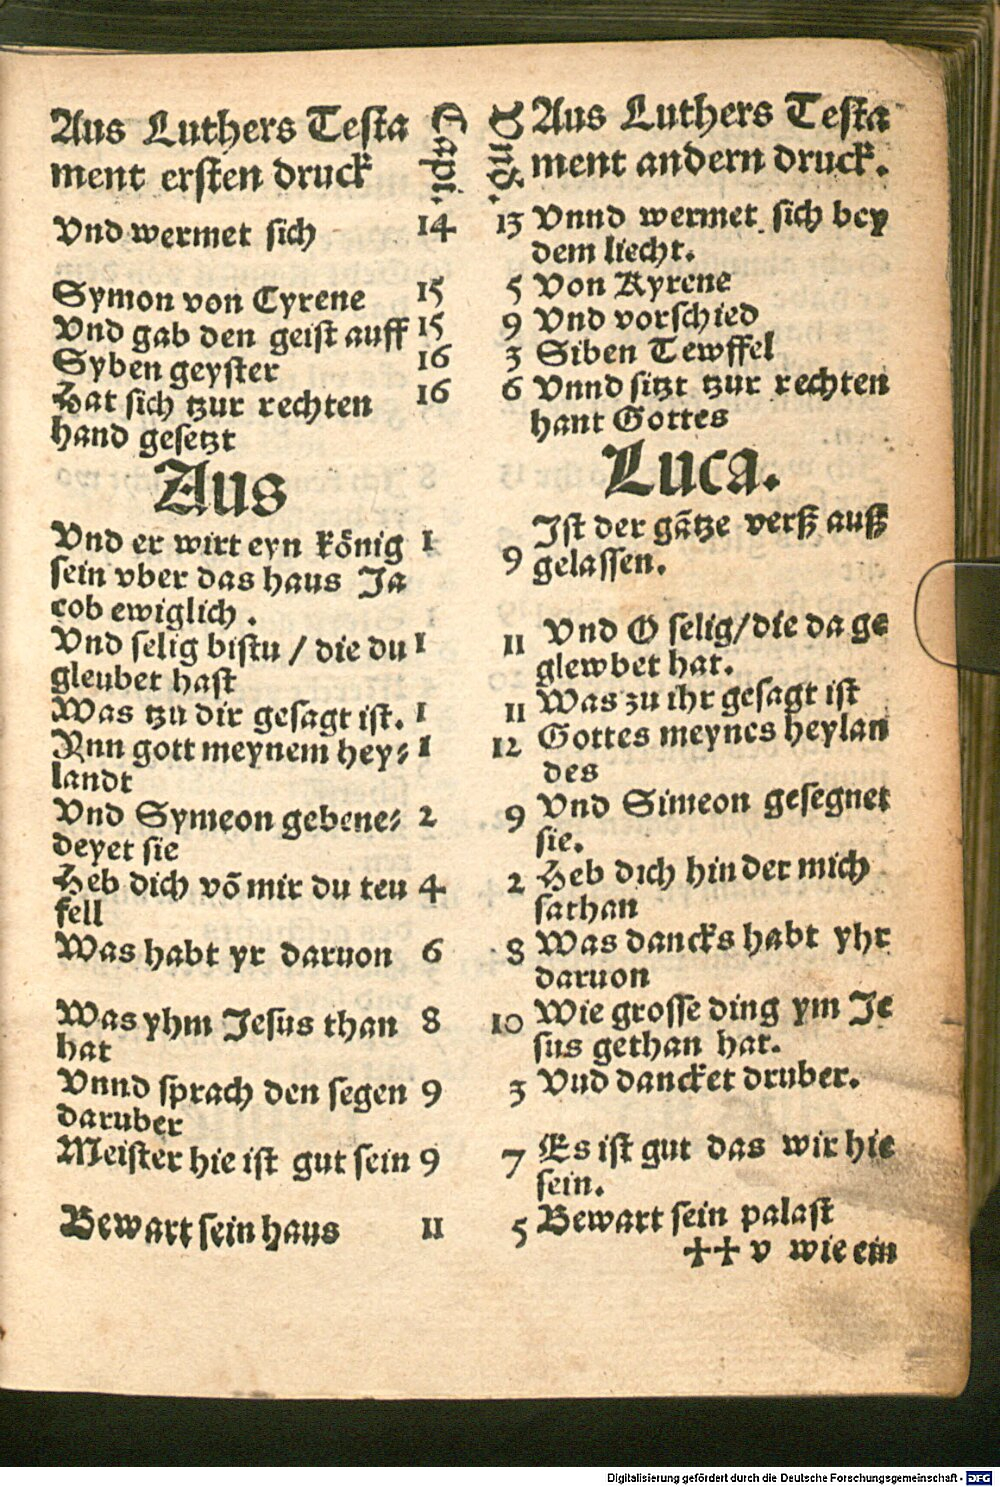 Aus Luthers Testa
ment ersten druck
Capi.
Vnd wermet sich 14
Symon von Cyrene 15
Vnd gab den geist auff 15
Syben geyster 16
Hat sich tzur rechten 16
hand gesetzt
Aus
Vnd er wirt eyn könig 1
sein vber das haus Ja
cob ewiglich .
Vnd selig bistu / die du 1
gleubet hast
Was tzu dir gesagt ist. 1
Ann gott meynem hey⸗ 1
landt
Vnd Symeon gebene⸗ 2
deyet sie
Heb dich võ mir du teu 4
fell
Was habt yr daruon 6
Was yhm Jesus than 8
hat
Vnnd sprach den segen 9
daruber
Meister hie ist gut sein 9
Bewart sein haus 11
Vnd.
Aus Luthers Testa
ment andern druck.
13 Vnnd wermet sich bey
dem liecht.
5 Von Kyrene
9 Vnd vorschied
3 Siben Tewffel
6 Vnnd sitzt tzur rechten
hant Gottes
Luca.
Ist der gãtze verß auß
9 gelassen.
11 Vnd O selig/die da ge
glewbet hat.
11 Was zu ihr gesagt ist
12 Gottes meynes heylan
des
9 Vnd Simeon gesegnet
sie.
2 Heb dich hinder mich
sathan
8 Was dancks habt yhr
daruon
10 Wie grosse ding ym Je
sus gethan hat.
3 Vnd dancket druber.
7 Es ist gut das wir hie
sein.
5 Bewart sein palast
++ v wie ein
Digitalisierung gefördert durch die Deutsche Forschungsgemeinschaft - DFG